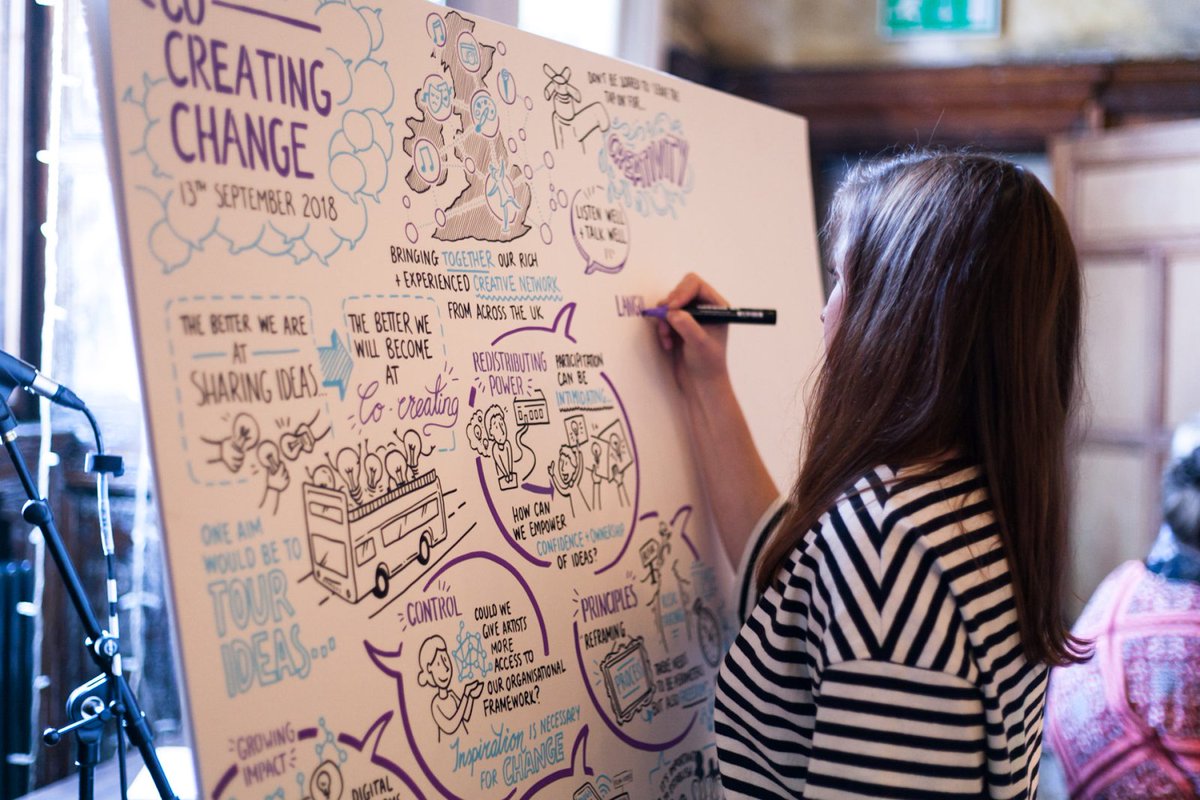 CO
CREATING
CHANGE
13TH SEPTEMBER 2018
BRINGING TOGETHER OUR RICH
+ EXPERIENCED CREATIVE NETWORK
FROM ACROSS THE UK
DON'T BE SCARED TO LEAVE THE
TAP ON FOR...
CREATIVITY
LISTEN WELL
+ TALK WELL
LANGU
THE BETTER WE ARE
AT
SHARING IDEAS...
THE BETTER WE
WILL BECOME
AT
Co-creating
ONE AIM
WOULD BE TO
TOUR
IDEAS...
REDISTRIBUTING
POWER
PARTICIPATION
CAN BE
INTIMIDATING...
HOW CAN
WE EMPOWER
CONFIDENCE + OWNERSHIP
OF IDEAS?
CONTROL
COULD WE
GIVE ARTISTS
MORE
ACCESS TO
OUR ORGANISATIONAL
FRAMEWORK?
INSPIRATION IS NECESSARY
FOR CHANGE
PRINCIPLES
REFRAMING
PROCESS
THESE NEED
TO BE
BUT ALSO
GROWING
IMPACT
DIGITAL